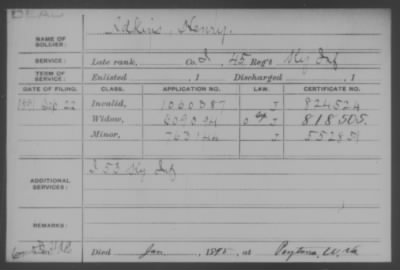 NAME OF SOLDIER: Adkins, Henry.
SERVICE: Late rank, Co. I, 45 Reg't Ky Inf
TERM OF SERVICE: Enlisted , 1 Discharged , 1
DATE OF FILING. CLASS. APPLICATION NO. LAW. CERTIFICATE NO.
1891 Sep. 22 Invalid, 1060387 J 824524
Widow, 609094 818505.
Minor, 763144 J 552851
ADDITIONAL SERVICES: I 53 Ky Inf
REMARKS:
Died Jan , 189 , at Peytona, W. Va